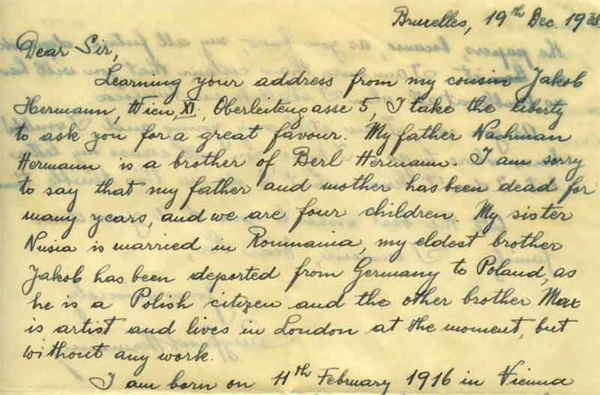 Bruxelles, 19th Dec. 1938
Dear Sir,
Learning your address from my cousin Jakob
Hermann, Wien, XI, Oberleitengasse 5, I take the liberty
to ask you for a great favour. My father Nachman
Hermann is a brother of Berl Hermann. I am sorry
to say that my father and mother has been dead for
many years, and we are four children. My sister
Nusia is married in Roumania, my eldest brother
Jakob has been deported from Germany to Poland, as
he is a Polish citizen and the other brother Max
is artist and lives in London at the moment, but
without any work.
I am born on 11th February 1916 in Vienna